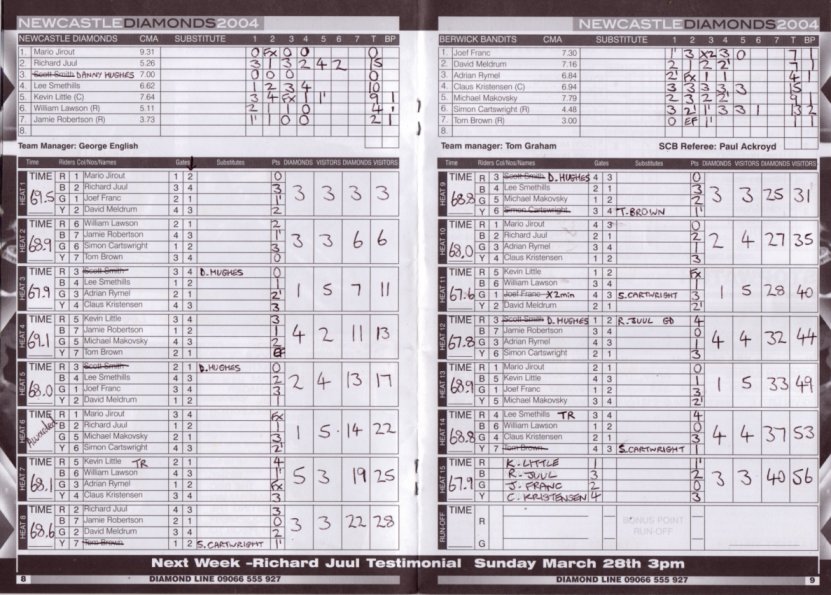 NEWCASTLEDIAMONDS2004
NEWCASTLE DIAMONDS CMA SUBSTITUTE 1 2 3 4 5 6 7 T BP
1. Mario Jirout 9.31 0 Fx 0 0 0
2. Richard Juul 5.26 3 1 3 2 4 2 15
3. Scott Smith DANNY HUGHES 7.00 0 0 0 0
4. Lee Smethills 6.62 1 2 3 4 10
5. Kevin Little (C) 7.64 3 4 Fx 1 1' 9 1
6. William Lawson (R) 5.11 2 1' 1 0 4 1
7. Jamie Robertson (R) 3.73 1' 1 0 0 2 1
8.
Team Manager: George English
Time Riders Col/Nos/Names Gates Substitutes Pts DIAMONDS VISITORS DIAMONDS VISITORS
HEAT 1 TIME 69.5 3 3 3 3
R 1 Mario Jirout 1 2 0
B 2 Richard Juul 3 4 3
G 1 Joef Franc 2 1 1'
Y 2 David Meldrum 4 3 2
HEAT 2 TIME 68.9 3 3 6 6
R 6 William Lawson 2 1 2
B 7 Jamie Robertson 4 3 1'
G 6 Simon Cartswright 1 2 3
Y 7 Tom Brown 3 4 0
HEAT 3 TIME 67.9 1 5 7 11
R 3 Scott Smith 3 4 D. HUGHES 0
B 4 Lee Smethills 1 2 1
G 3 Adrian Rymel 2 1 2'
Y 4 Claus Kristensen 4 3 3
HEAT 4 TIME 69.1 4 2 11 13
R 5 Kevin Little 3 4 3
B 7 Jamie Robertson 1 2 1
G 5 Michael Makovsky 4 3 2
Y 7 Tom Brown 2 1 EF
HEAT 5 TIME 68.0 2 4 13 17
R 3 Scott Smith 2 1 D. HUGHES 0
B 4 Lee Smethills 4 3 2
G 1 Joef Franc 3 4 3
Y 2 David Meldrum 1 2 1
HEAT 6 TIME Awarded 1 5 14 22
R 1 Mario Jirout 3 4 Fx
B 2 Richard Juul 1 2 1
G 5 Michael Makovsky 2 1 3
Y 6 Simon Cartswright 4 3 2'
HEAT 7 TIME 68.1 5 3 19 25
R 5 Kevin Little TR 2 1 4
B 6 William Lawson 4 3 1'
G 3 Adrian Rymel 1 2 Fx
Y 4 Claus Kristensen 3 4 3
HEAT 8 TIME 68.6 3 3 22 28
R 2 Richard Juul 4 3 3
B 7 Jamie Robertson 2 1 0
G 2 David Meldrum 3 4 2
Y 7 Tom Brown 1 2 S. CARTWRIGHT 1'
Next Week -Richard Juul Testimonial Sunday March 28th 3pm
8 DIAMOND LINE 09066 555 927
NEWCASTLEDIAMONDS2004
BERWICK BANDITS CMA SUBSTITUTE 1 2 3 4 5 6 7 T BP
1. Joef Franc 7.30 1' 3 X2 3 0 7 1
2. David Meldrum 7.16 2 1 2 2' 7 1
3. Adrian Rymel 6.84 2' Fx 1 1 4 1
4. Claus Kristensen (C) 6.94 3 3 3 3 3 15
5. Michael Makovsky 7.79 2 3 2 2' 9 1
6. Simon Cartswright (R) 4.48 3 2' 1' 3 3 1 13 2
7. Tom Brown (R) 3.00 0 EF 1' 1 1
8.
Team manager: Tom Graham SCB Referee: Paul Ackroyd
Time Riders Col/Nos/Names Gates Substitutes Pts DIAMONDS VISITORS DIAMONDS VISITORS
HEAT 9 TIME 68.8 3 3 25 31
R 3 Scott Smith D. HUGHES 4 3 0
B 4 Lee Smethills 2 1 3
G 5 Michael Makovsky 1 2 2
Y 6 Simon Cartswright 3 4 T. BROWN 1'
HEAT 10 TIME 68.0 2 4 27 35
R 1 Mario Jirout 4 3 0
B 2 Richard Juul 2 1 2
G 3 Adrian Rymel 3 4 1
Y 4 Claus Kristensen 1 2 3
HEAT 11 TIME 67.6 1 5 28 40
R 5 Kevin Little 1 2 Fx
B 6 William Lawson 3 4 1
G 1 Joef Franc X2min 4 3 S. CARTWRIGHT 3
Y 2 David Meldrum 2 1 2'
HEAT 12 TIME 67.8 4 4 32 44
R 3 Scott Smith D. HUGHES 1 2 R. JUUL GD 4
B 7 Jamie Robertson 3 4 0
G 3 Adrian Rymel 4 3 1
Y 6 Simon Cartswright 2 1 3
HEAT 13 TIME 68.9 1 5 33 49
R 1 Mario Jirout 2 1 0
B 5 Kevin Little 4 3 1
G 1 Joef Franc 1 2 3
Y 5 Michael Makovsky 3 4 2'
HEAT 14 TIME 68.8 4 4 37 53
R 4 Lee Smethills TR 3 4 4
B 6 William Lawson 1 2 0
G 4 Claus Kristensen 2 1 3
Y 7 Tom Brown 4 3 S. CARTWRIGHT 1
HEAT 15 TIME 67.9 3 3 40 56
R K. LITTLE 1 1'
B R. JUUL 3 2
G J. FRANC 2 0
Y C. KRISTENSEN 4 3
RUN-OFF TIME
R
G
BONUS POINT
RUN-OFF
DIAMOND LINE 09066 555 927 9